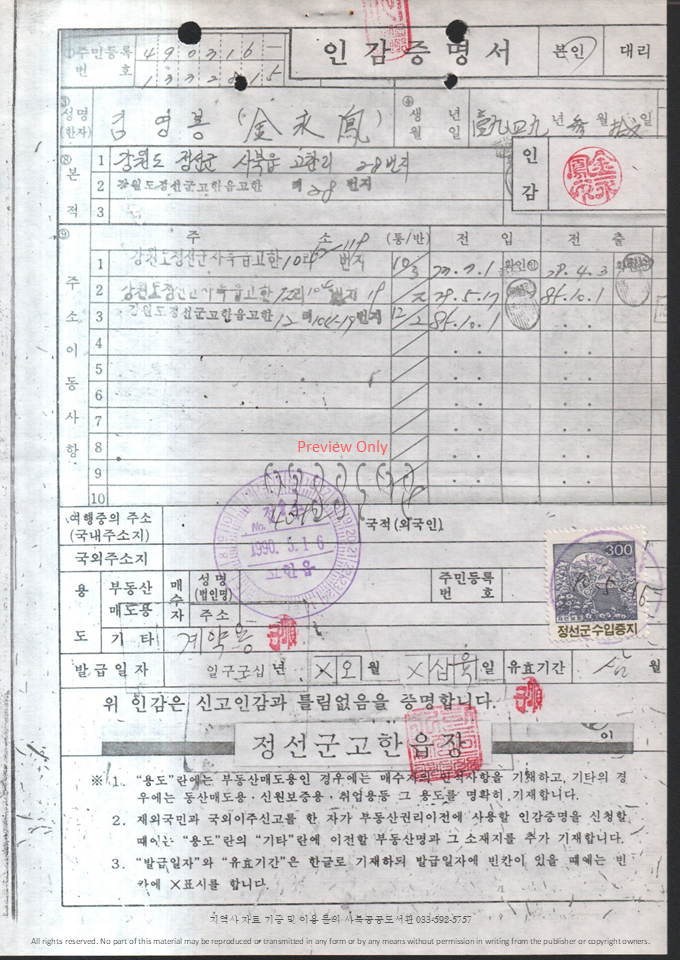 주민등록 번호 490316-
1332815
인감증명서
본인
대리
성명 (한자) 김영봉 (金永鳳)
생년월일 壹九四九年 월 일
인감
본적
1 강원도 정선군 사북읍 고한리 28번지
2 강원도정선군고한읍고한 리 28 번지
3
주소이동사항
주소 (통/반) 전입 전출
1 강원도정선군사북읍고한10리 번지 10/3 확인 확인
2 번지 85.10.1
3 강원도정선군고한읍고한 12리 번지 12/2 85.10.1
4
5
6
7
8
9
10
Preview Only
여행중의 주소 (국내주소지)
국적 (외국인)
국외주소지
No.
1990. 5. 16
고한읍
300
정선군수입증지
용도
부동산 매도용
매수자
성명 (법인명)
주민등록 번호
주소
기타 계약용
발급일자 일구구십 년 X오 월 X삽육 일 유효기간 삼 월
위 인감은 신고인감과 틀림없음을 증명합니다.
정선군고한읍장
인
※ 1. “용도”란에는 부동산매도용인 경우에는 매수자의 인적사항을 기재하고, 기타의 경
우에는 동산매도용·신원보증용·취업용등 그 용도를 명확히 기재합니다.
2. 재외국민과 국외이주신고를 한 자가 부동산권리이전에 사용할 인감증명을 신청할
때에는 “용도”란의 “기타”란에 이전할 부동산명과 그 소재지를 추가 기재합니다.
3. “발급일자”와 “유효기간”은 한글로 기재하되 발급일자에 빈칸이 있을 때에는 빈
칸에 X표시를 합니다.
지역사 자료 기증 및 이용 문의 사북공공도서관 033-592-5757
All rights reserved. No part of this material may be reproduced or transmitted in any form or by any means without permission in writing from the publisher or copyright owners.